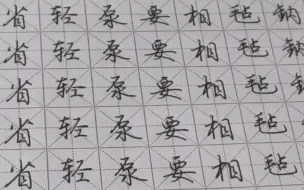 省轻泵要相毡钠
省轻泵要相毡钠
省轻泵要相毡
省轻泵要相毡
省轻泵要相毡